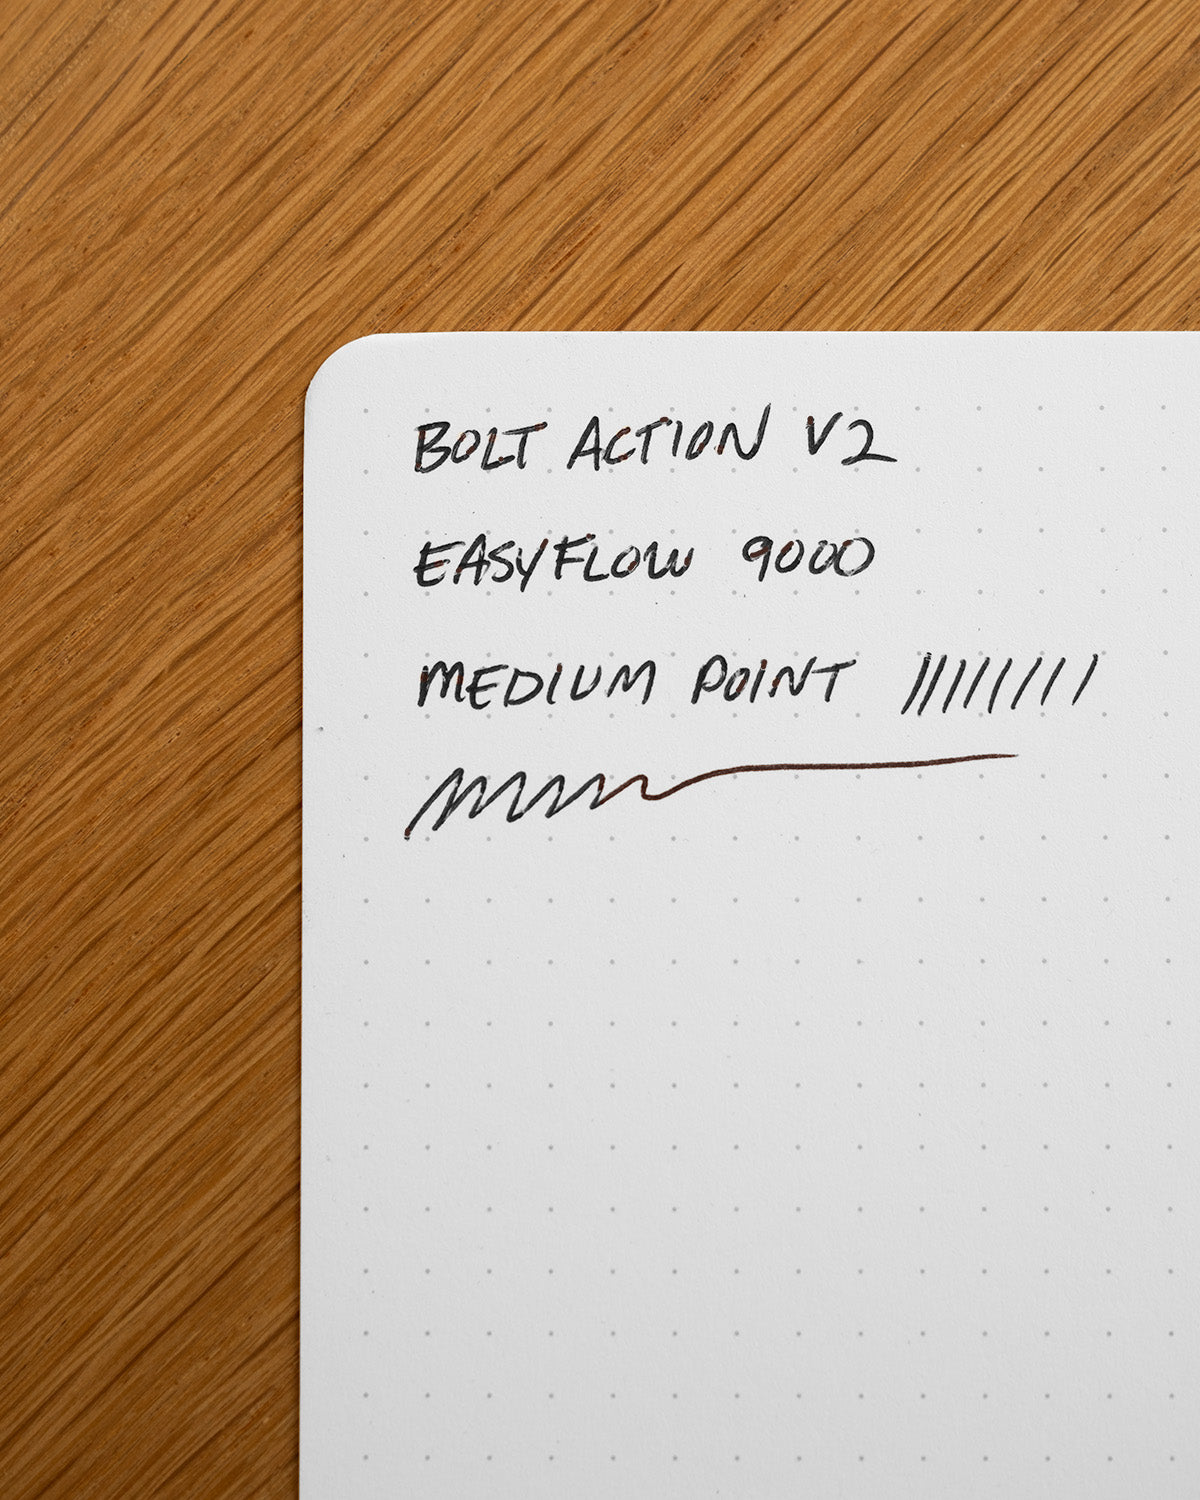 BOLT ACTION V2
EASYFLOW 9000
MEDIUM POINT